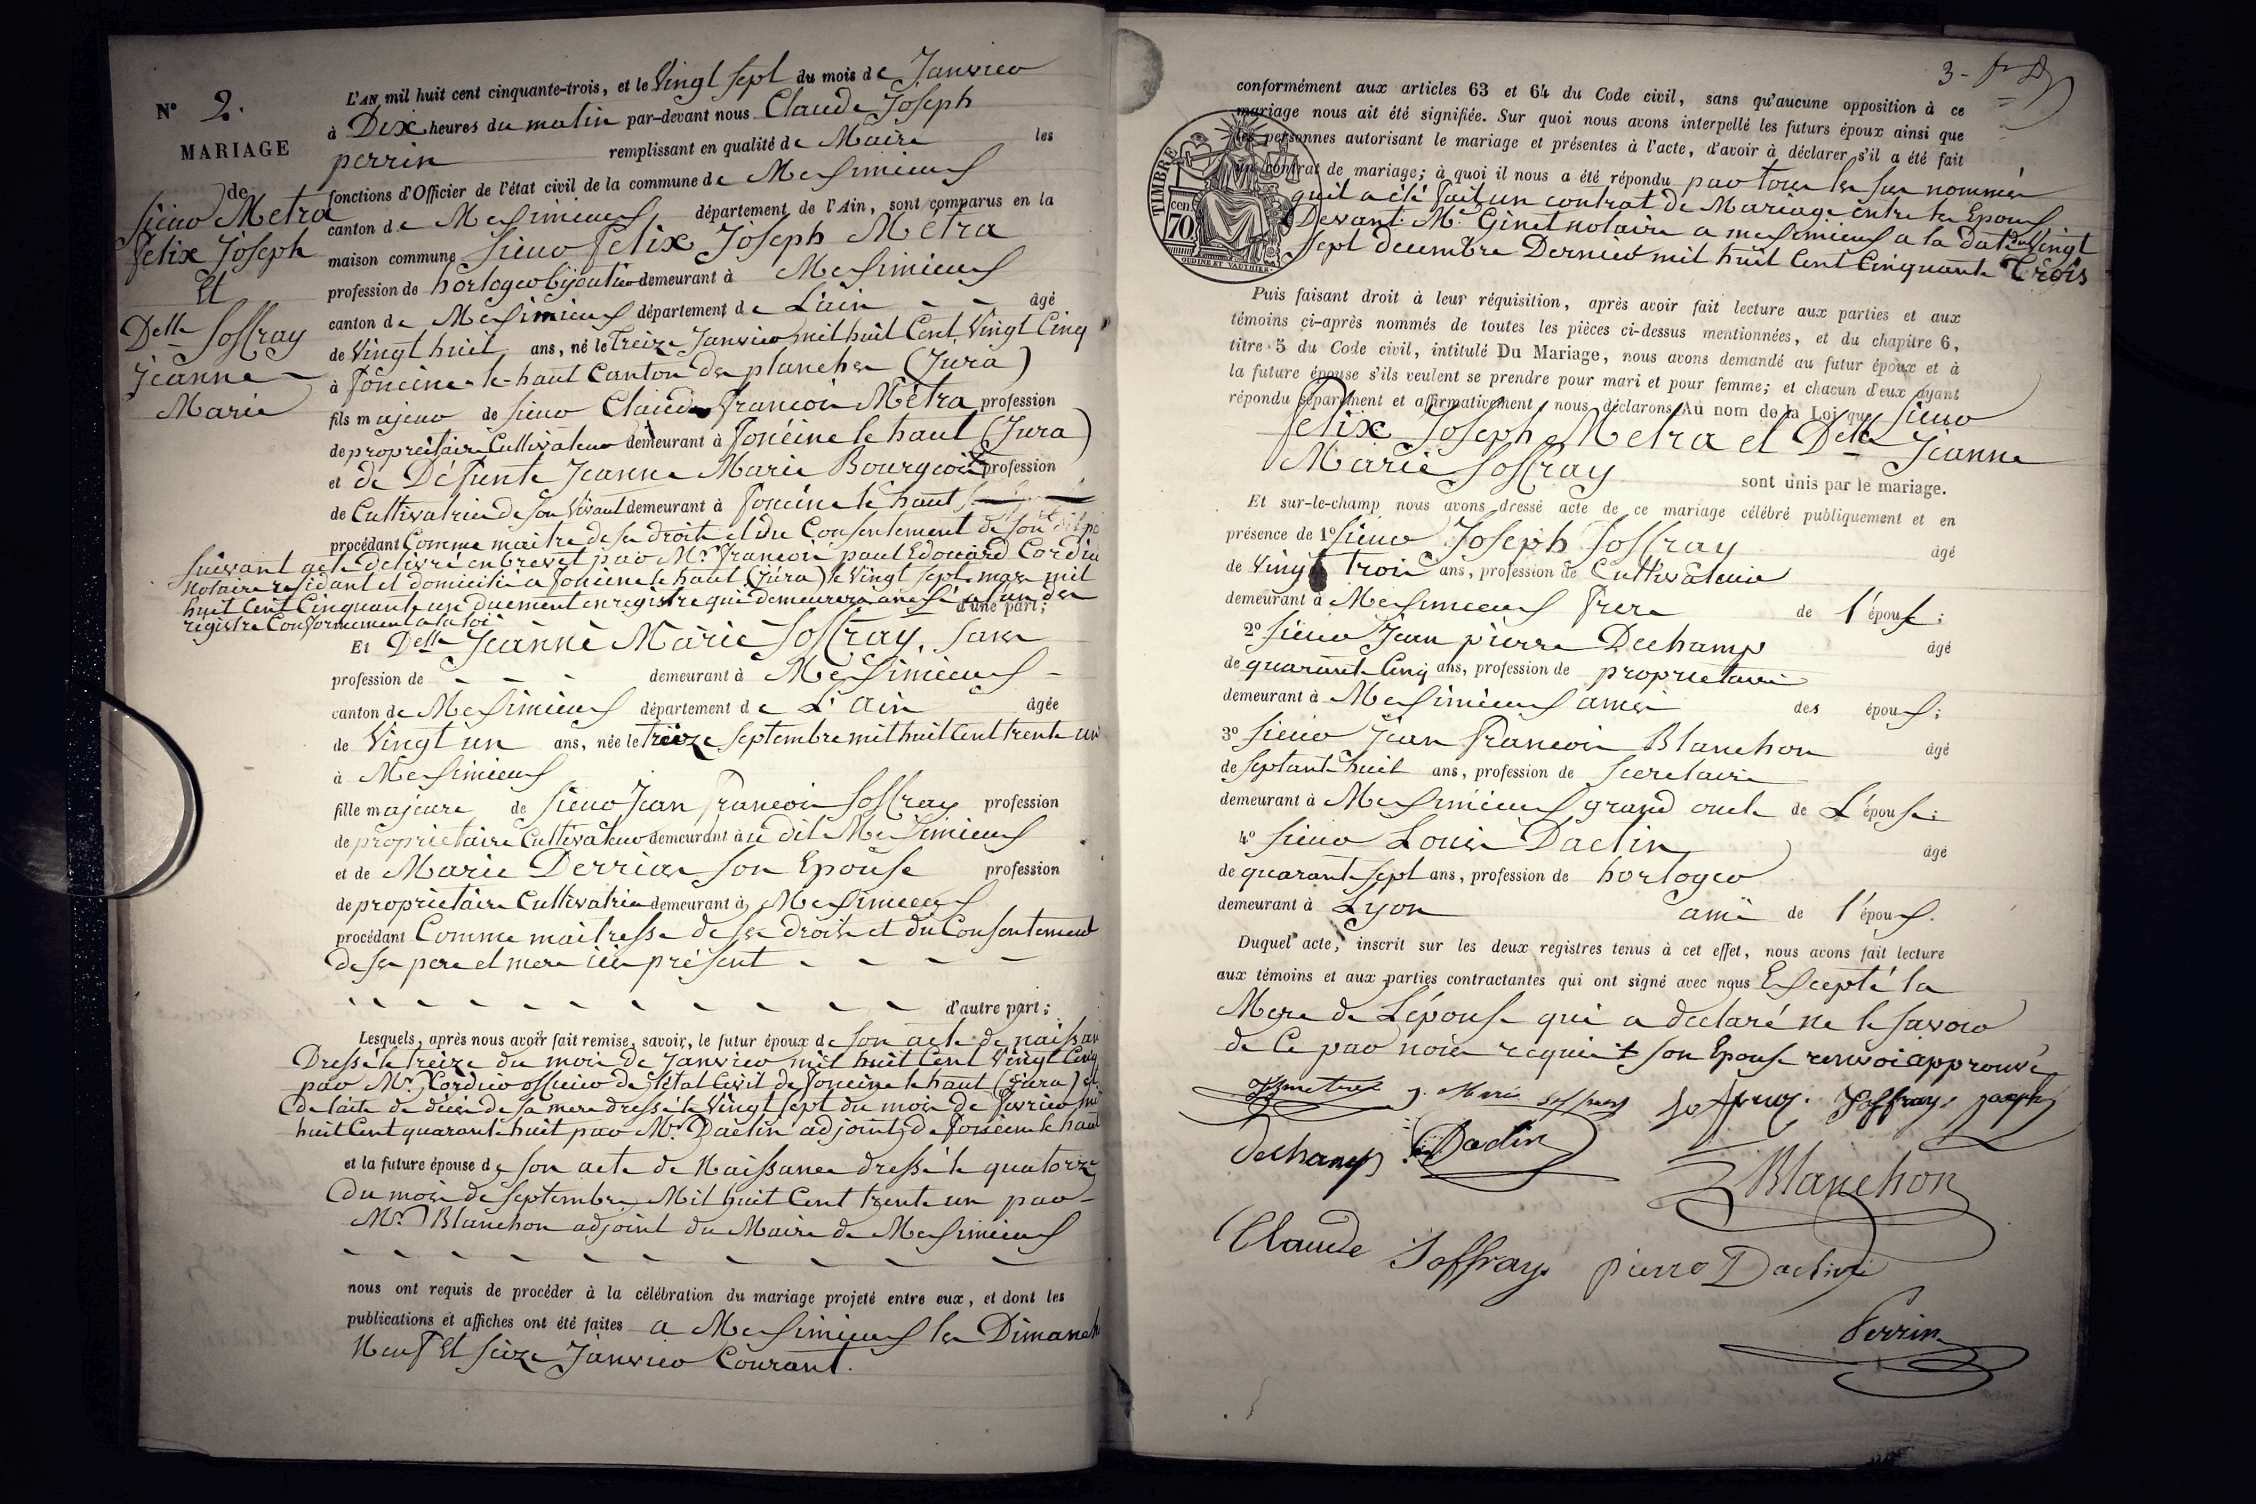 N° 2.
MARIAGE
de
Sieur Metra
Felix Joseph
Et
Delle Joffray
Jeanne
Marie
L'AN mil huit cent cinquante-trois, et le Vingt Sept du mois de Janvier
à Dix heures du matin par-devant nous Claude Joseph
perrin remplissant en qualité de Maire les
fonctions d'Officier de l'état civil de la commune de Meximieux
canton de Meximieux département de l'Ain, sont comparus en la
maison commune Sieur Felix Joseph Métra
profession de horloger bijoutier demeurant à Meximieux
canton de Meximieux département de L'ain âgé
de Vingt huit ans, né le Treize Janvier mil huit Cent Vingt Cinq
à Foncine-le-haut Canton des planches (Jura)
fils majeur de Sieur Claude François Métra profession
de propriétaire Cultivateur demeurant à Foncine le haut (Jura)
et de Défunte Jeanne Marie Bourgeois profession
de Cultivatrice de son Vivant demeurant à Foncine le haut
procédant Comme maitre de ses droits et du Consentement de son dit
Suivant acte délivré en brevet par Mr. François paul Edouard Cordier
Notaire residant et domicilié a Foncine le haut (Jura) le Vingt Sept mars mil
huit Cent Cinquante un duement enregistre qui demeurera anexé a l'un des
registre Conformement a la loi d'une part;
Et Delle Jeanne Marie Joffray, Sans
profession de demeurant à Meximieux
canton de Meximieux département de L'ain âgée
de Vingt un ans, née le treize Septembre mil huit Cent trente un
à Meximieux
fille majeure de Sieur Jean François Joffray profession
de propriétaire Cultivateur demeurant à u dit Meximieux
et de Marie Derrias son Epouse profession
de propriétaire Cultivatrice demeurant à Meximieux
procédant Comme maitresse de ses droits et du Consentement
de ses pere et mere ici présent
d'autre part;
Lesquels, après nous avoir fait remise, savoir, le futur époux de son acte de naissan
Dressé le treize du mois de Janvier mil huit Cent Vingt Cinq
par Mr. Cordier officier de l'état Civil de Foncine le haut (Jura) et
de l'acte de décès de sa mere dressé le Vingt Sept du mois de Fevrier mil
huit Cent quarante huit par Mr. Daclin adjoint de Foncine le haut
et la future épouse de son acte de Naissance dressé le quatorze
du mois de Septembre Mil huit Cent trente un par
Mr. Blanchon adjoint du Maire de Meximieux
nous ont requis de procéder à la célébration du mariage projeté entre eux, et dont les
publications et affiches ont été faites a Meximieux les Dimanch
Neuf Et Seize Janvier Courant.
3-
conformément aux articles 63 et 64 du Code civil, sans qu'aucune opposition à ce
mariage nous ait été signifiée. Sur quoi nous avons interpellé les futurs époux ainsi que
les personnes autorisant le mariage et présentes à l'acte, d'avoir à déclarer s'il a été fait
un contrat de mariage; à quoi il nous a été répondu par tous les sus nommés
quil a été fait un contrat de Mariage entre les Epoux
Devant Me. Ginet notaire a meximieux a la date du Vingt
Sept decembre Dernier mil huit Cent Cinquante Trois
TIMBRE
70 cen
OUDINE ET VAUTHIER
Puis faisant droit à leur réquisition, après avoir fait lecture aux parties et aux
témoins ci-après nommés de toutes les pièces ci-dessus mentionnées, et du chapitre 6,
titre 5 du Code civil, intitulé Du Mariage, nous avons demandé au futur époux et à
la future épouse s'ils veulent se prendre pour mari et pour femme; et chacun d'eux ayant
répondu séparément et affirmativement, nous déclarons Au nom de la Loi que Sieur
Felix Joseph Metra et Delle Jeanne
Marie Joffray sont unis par le mariage.
Et sur-le-champ nous avons dressé acte de ce mariage célébré publiquement et en
présence de 1° Sieur Joseph Joffray âgé
de Vingt trois ans, profession de Cultivateur
demeurant à Meximieux frere de l'épouse;
2° Sieur Jean pierre Dechamp âgé
de quarante Cinq ans, profession de propriétaire
demeurant à Meximieux amis des époux;
3° Sieur Jean François Blanchon âgé
de Septante huit ans, profession de Secretaire
demeurant à Meximieux grand oncle de L'épouse;
4° Sieur Louis Daclin âgé
de quarante Sept ans, profession de horloger
demeurant à Lyon ami de l'époux.
Duquel acte, inscrit sur les deux registres tenus à cet effet, nous avons fait lecture
aux témoins et aux parties contractantes qui ont signé avec nous Excepté la
Mere de L'épouse qui a declaré ne le savoir
de Ce par nous requis son Epouse renvoi approuvé
J. Marie Joffray Joffray. Joffray Joseph
Dechamp Daclin
Blanchon
Claude Joffray pierre Daclin
Perrin